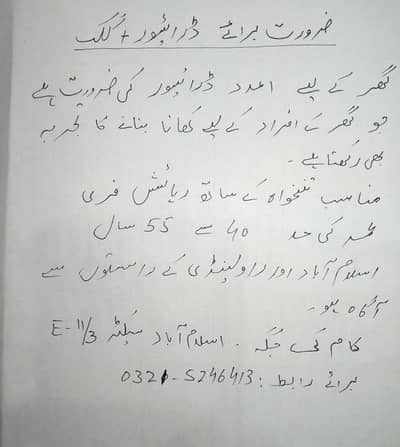 ضرورت برائے ڈرائیور + کُک
گھر کے لیے 1 عدد ڈرائیور کی ضرورت ہے
جو گھر کے افراد کے لیے کھانا بنانے کا تجربہ
بھی رکھتا ہے۔
مناسب تنخواہ کے ساتھ رہائش فری
عمر کی حد 40 سے 55 سال
اسلام آباد اور راولپنڈی کے راستوں سے
آگاہ ہو۔
کام کی جگہ ۔ اسلام آباد سیکٹر E-11/3
برائے رابطہ : 0321-5246413